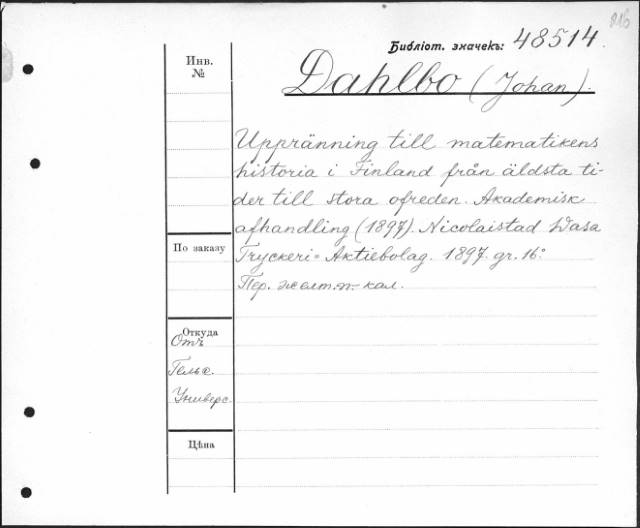 816
Библіот. значекъ: 48514.
Инв.
№
Dahlbo (Johan).
Uppränning till matematikens
historia i Finland från äldsta ti-
der till stora ofreden. Akademisk
afhandling (1897). Nicolaistad Wasa
По заказу
Tryckeri-Aktiebolag. 1897. gr. 16:
Пер. желт. п. кал.
Откуда
Отъ
Гельс.
Универс.
Цѣна